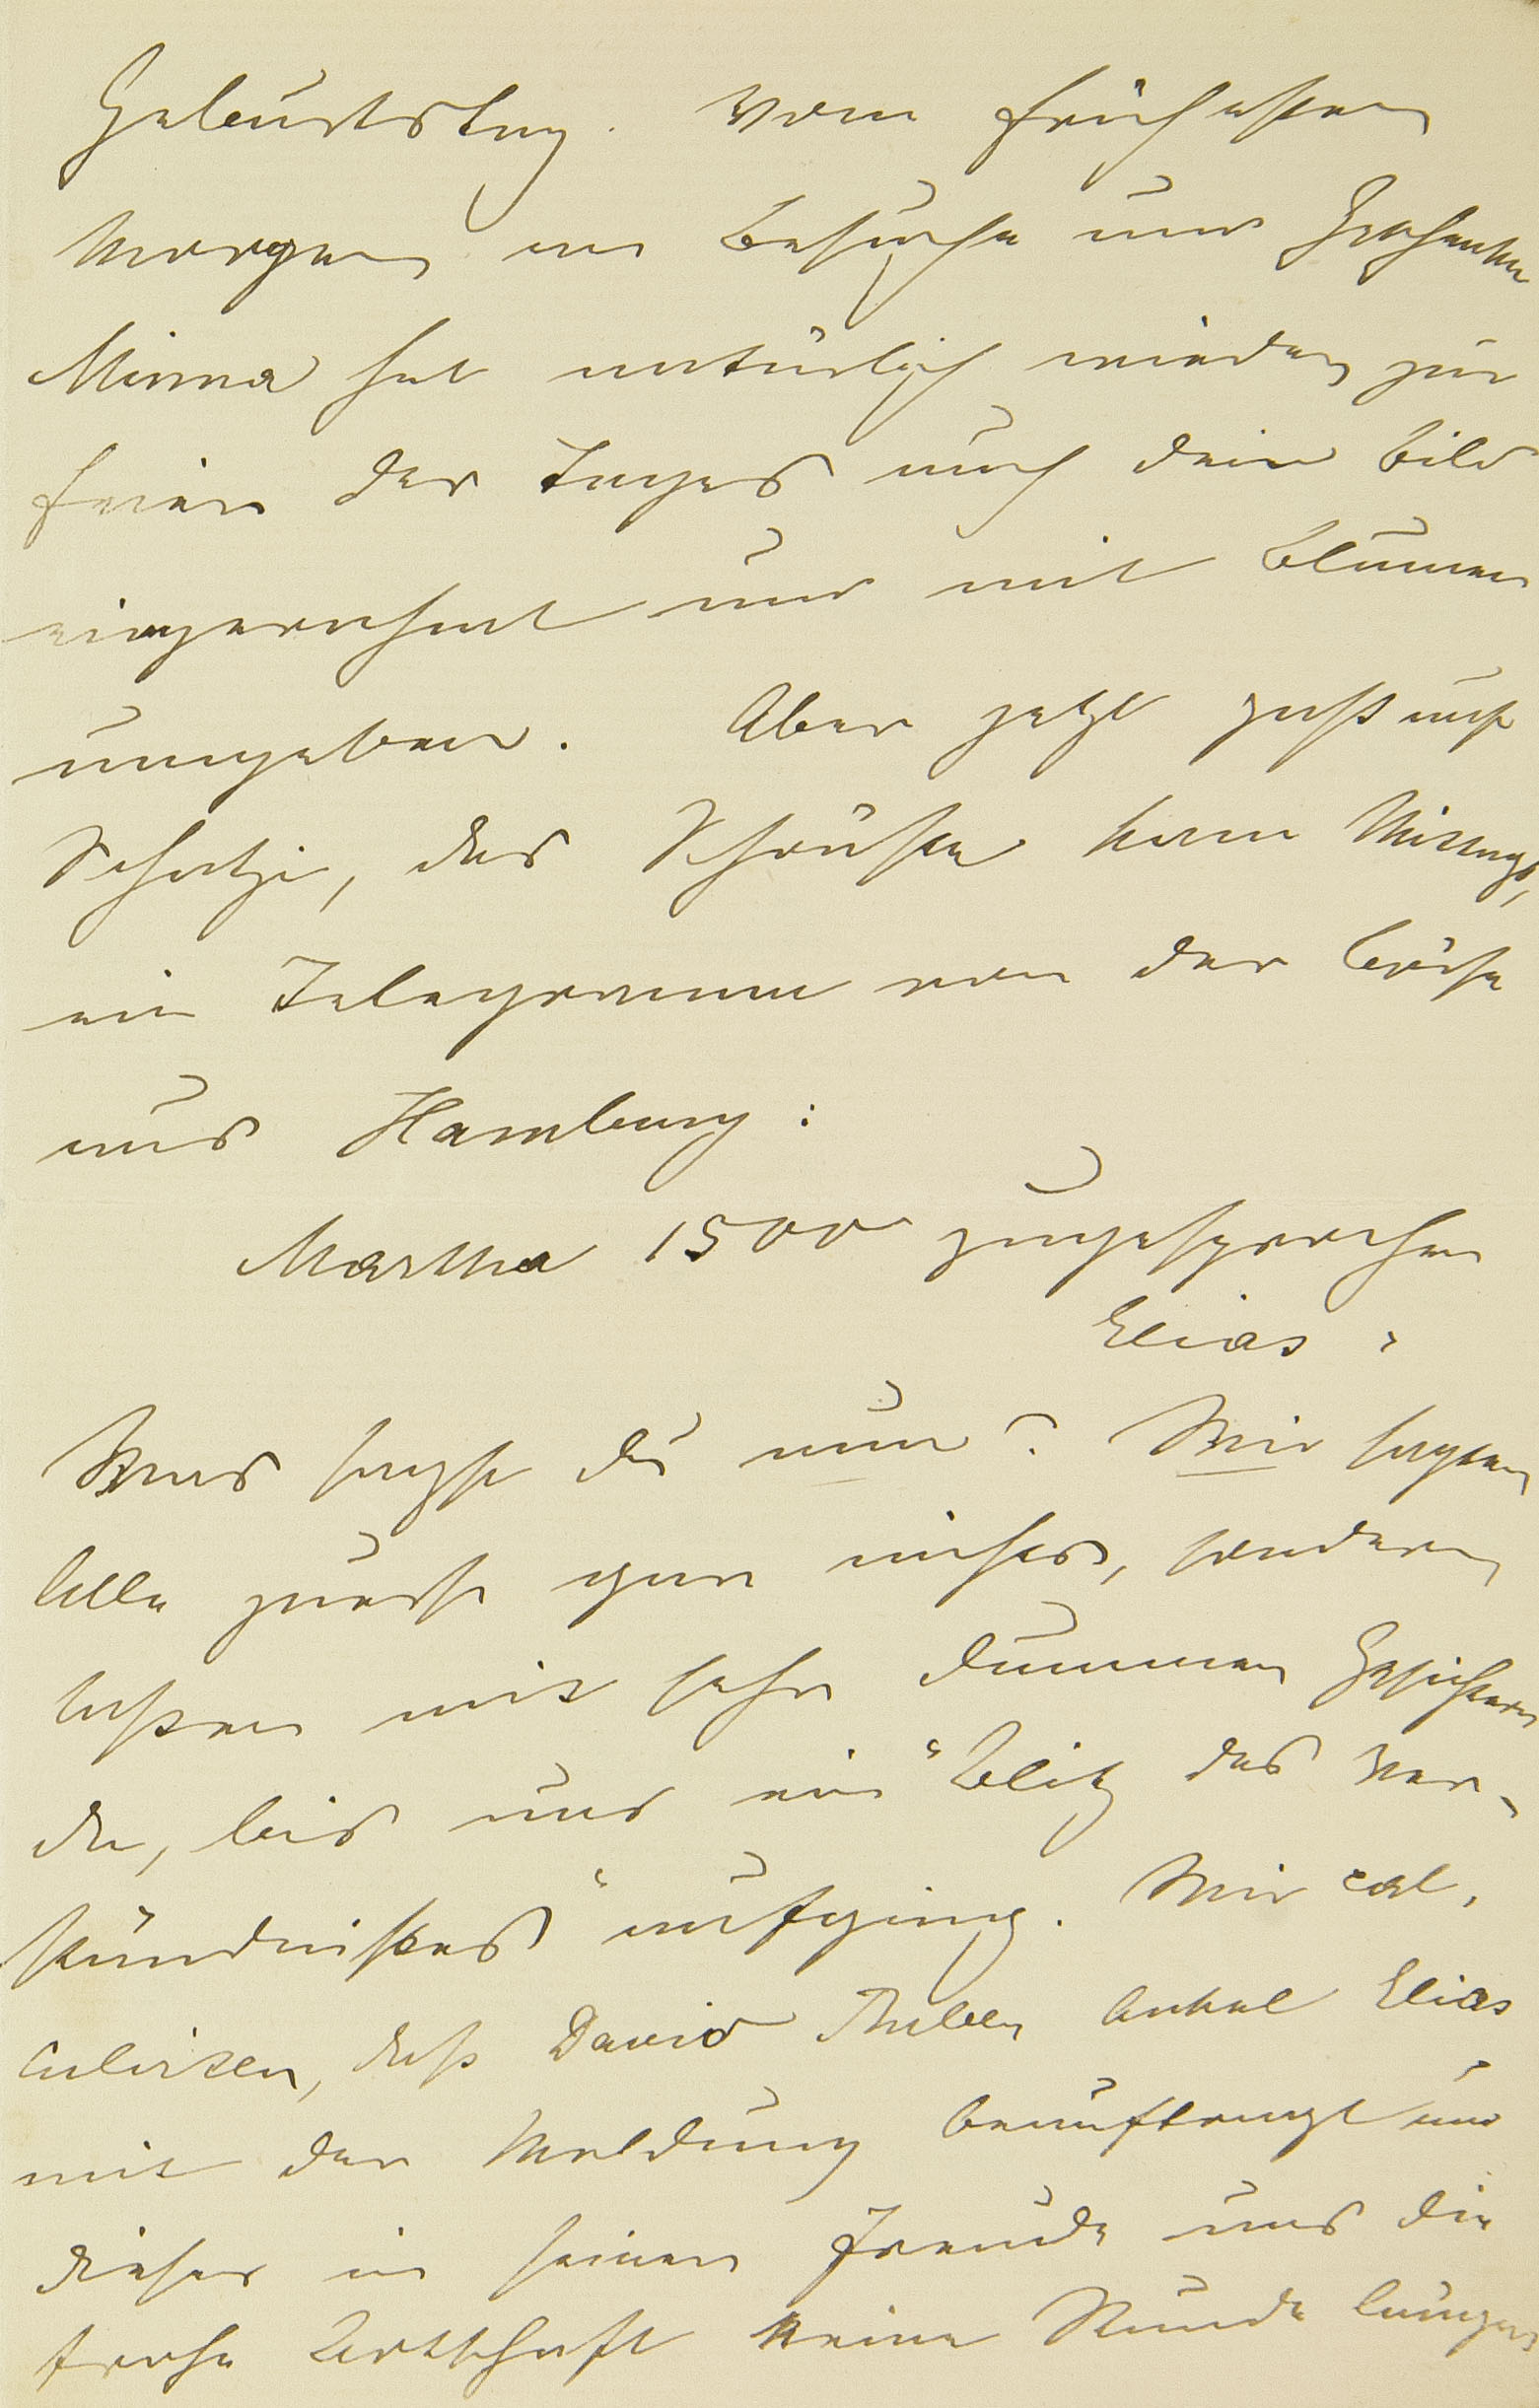 Geburtstag. Vom frühesten
Morgen an Besuche und Geschenke
Minna hat natürlich wieder zur
Feier des Tages auch dein Bild
eingerahmt und mit Blumen
umgeben. Aber jetzt paß auf
Schatzi, das Schönste kam Mittags,
ein Telegramm von der Börse
aus Hamburg:
Martha 1500 zugesprochen
Elias.
Was sagst du nun? Wir sagten
Alle zuerst gar nichts, sondern
saßen mit sehr dummen Gesichtern
da, bis uns ein "Blitz des Ver-
ständnißes" aufging. Wir cal-
culirten, daß David Onkel Elias
mit der Meldung beauftragt und
dieser in seiner Freude uns die
frohe Botschaft keine Stunde länger